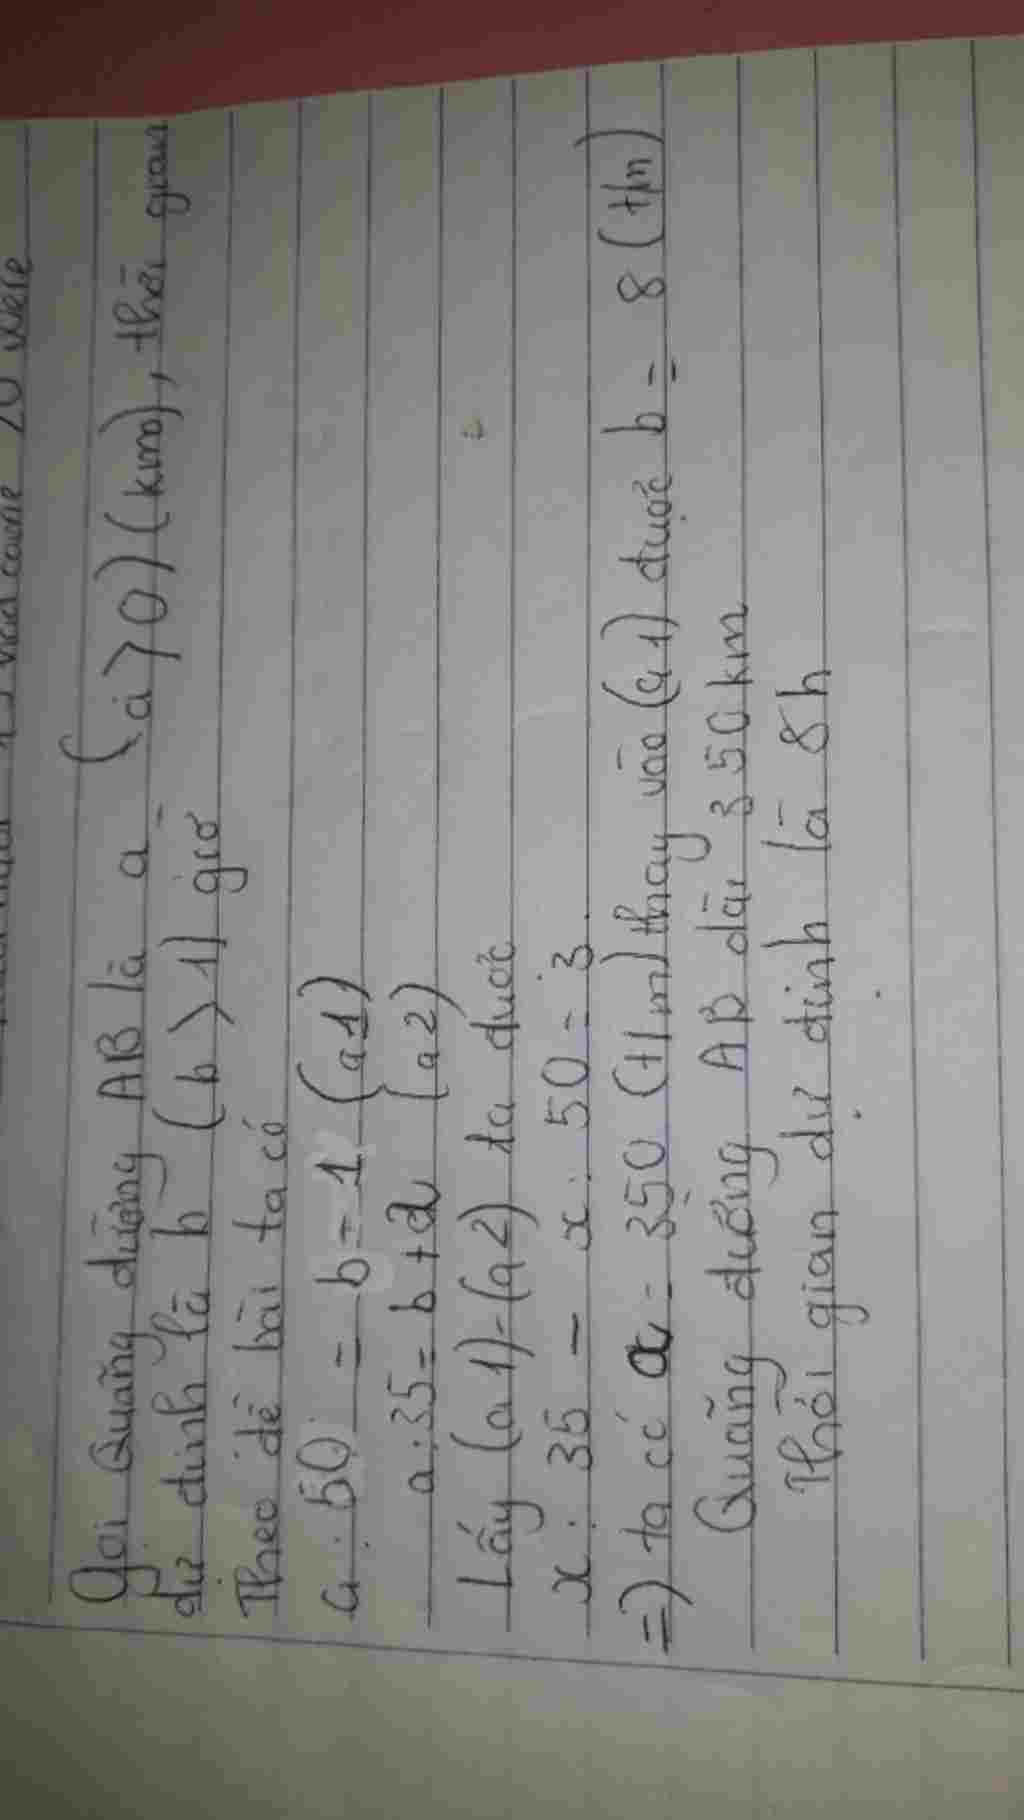 20 were
Gọi Quãng đường AB là a (a>0) (km), thời gian
dự định là b (b>1) giờ
Theo đề bài ta có
a:50 = b-1 (a1)
a:35 = b+2 (a2)
Lấy (a1)-(a2) ta được
x:35 - x:50 = 3
=) ta có a = 350 (t/m) thay vào (a1) được b = 8 (t/m)
Quãng đường AB dài 350km
Thời gian dự định là 8h